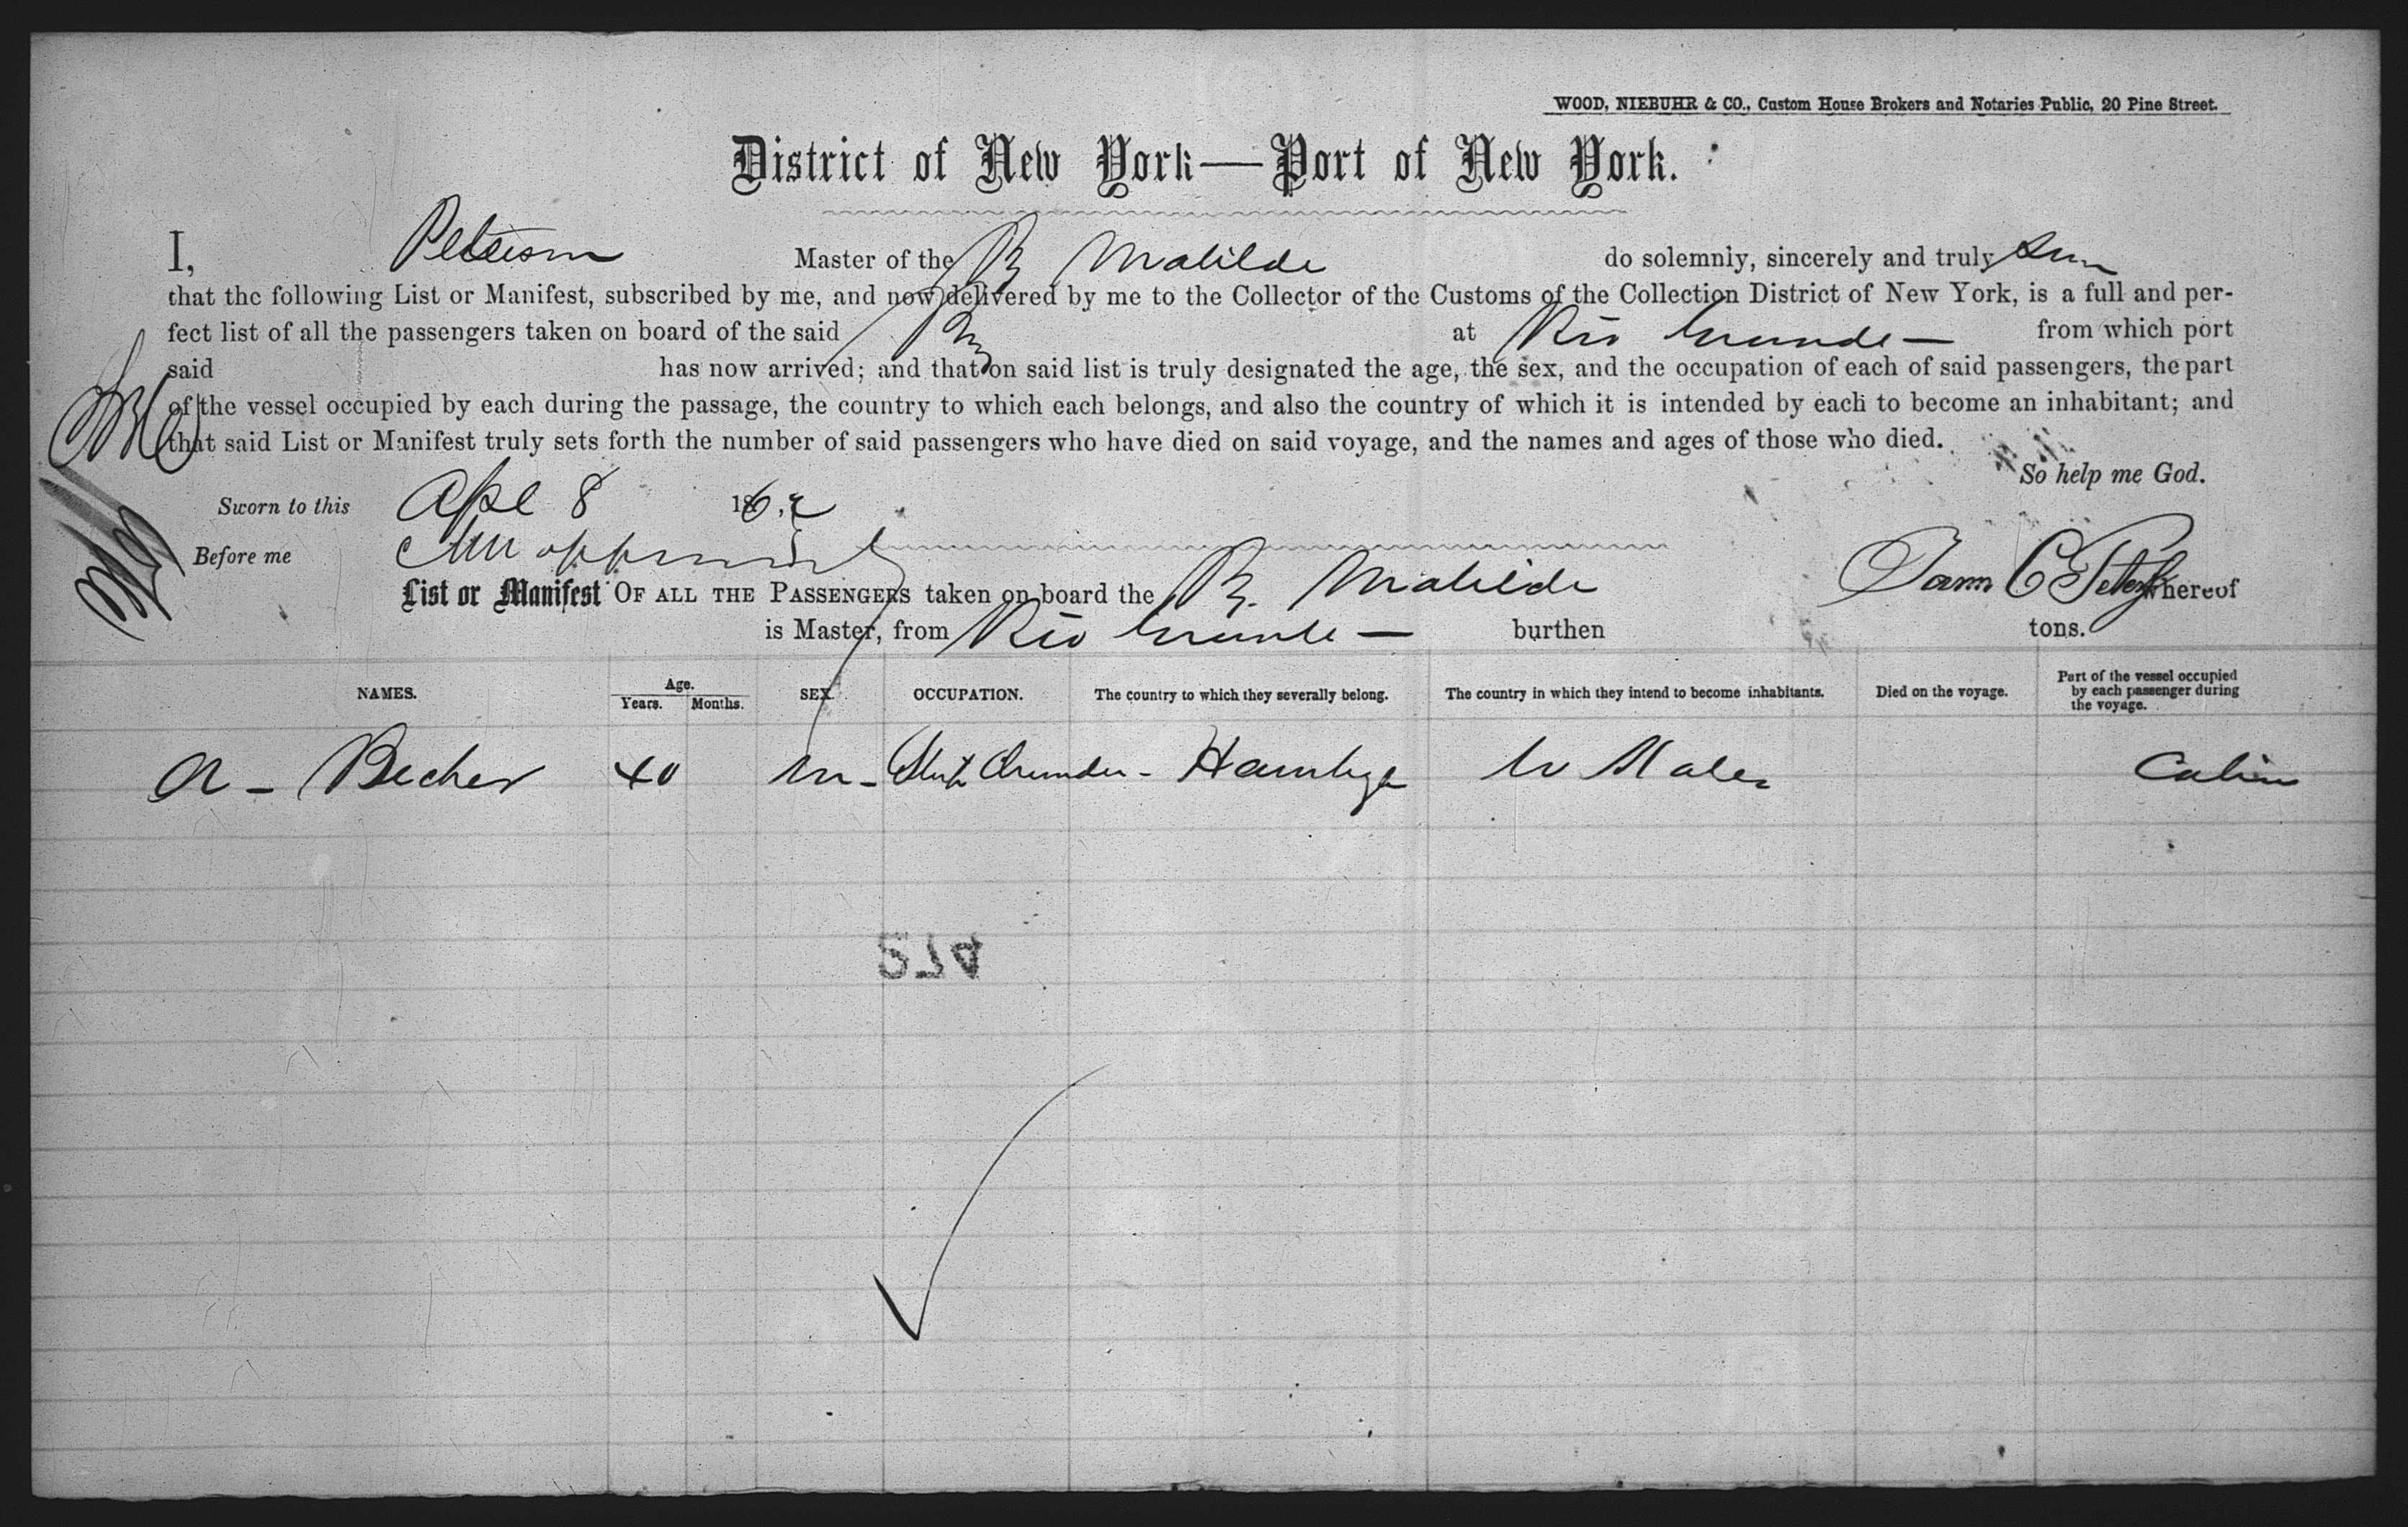 WOOD, NIEBUHR & CO., Custom House Brokers and Notaries Public, 20 Pine Street.
District of New York—Port of New York.
I, Peterson Master of the B Matilde do solemnly, sincerely and truly
that the following List or Manifest, subscribed by me, and now delivered by me to the Collector of the Customs of the Collection District of New York, is a full and per-
fect list of all the passengers taken on board of the said at Rio Grande — from which port
said has now arrived; and that on said list is truly designated the age, the sex, and the occupation of each of said passengers, the part
of the vessel occupied by each during the passage, the country to which each belongs, and also the country of which it is intended by each to become an inhabitant; and
that said List or Manifest truly sets forth the number of said passengers who have died on said voyage, and the names and ages of those who died.
So help me God.
Sworn to this Apl 8 1862
Before me
List or Manifest OF ALL THE PASSENGERS taken on board the B. Matilde whereof
is Master, from Rio Grande — burthen tons.
NAMES. Age. Years. Months. SEX. OCCUPATION. The country to which they severally belong. The country in which they intend to become inhabitants. Died on the voyage. Part of the vessel occupied by each passenger during the voyage.
A - Becher 40 m - Hamburg U States Cabin
274